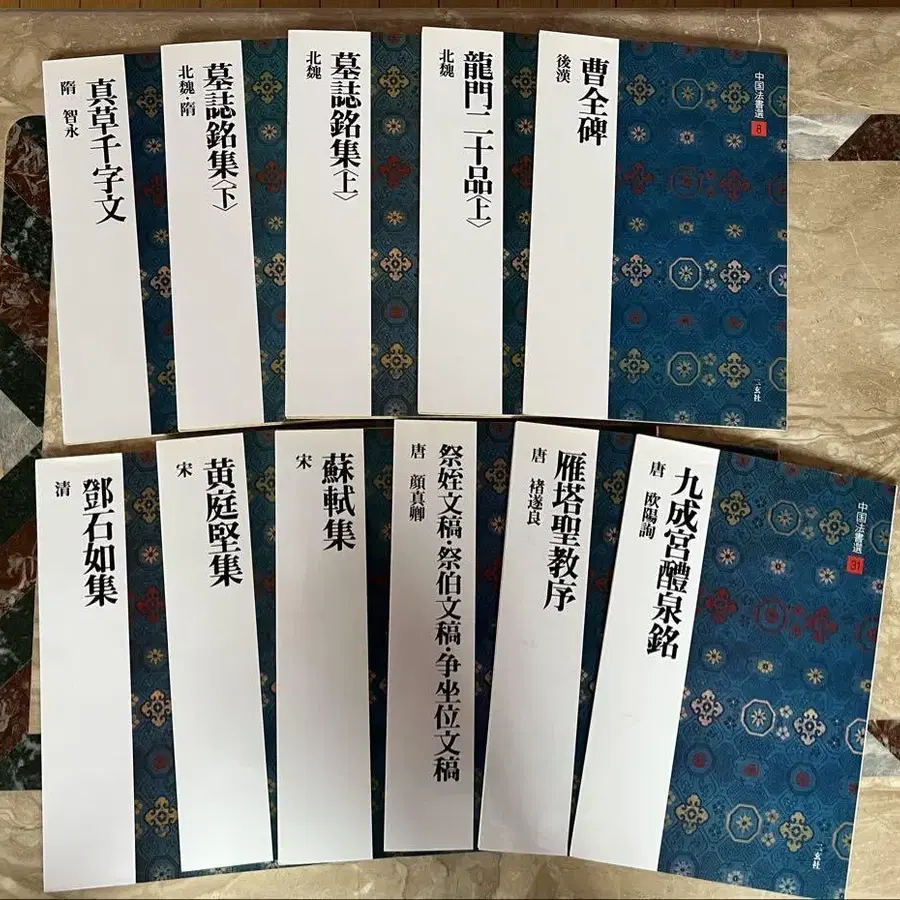 曹全碑
後漢
中国法書選
8
二玄社
龍門二十品〈上〉
北魏
墓誌銘集〈上〉
北魏
墓誌銘集〈下〉
北魏・隋
真草千字文
隋 智永
九成宮醴泉銘
唐 欧陽詢
中国法書選
31
二玄社
雁塔聖教序
唐 褚遂良
祭姪文稿・祭伯文稿・争坐位文稿
唐 顔真卿
蘇軾集
宋
黄庭堅集
宋
鄧石如集
清